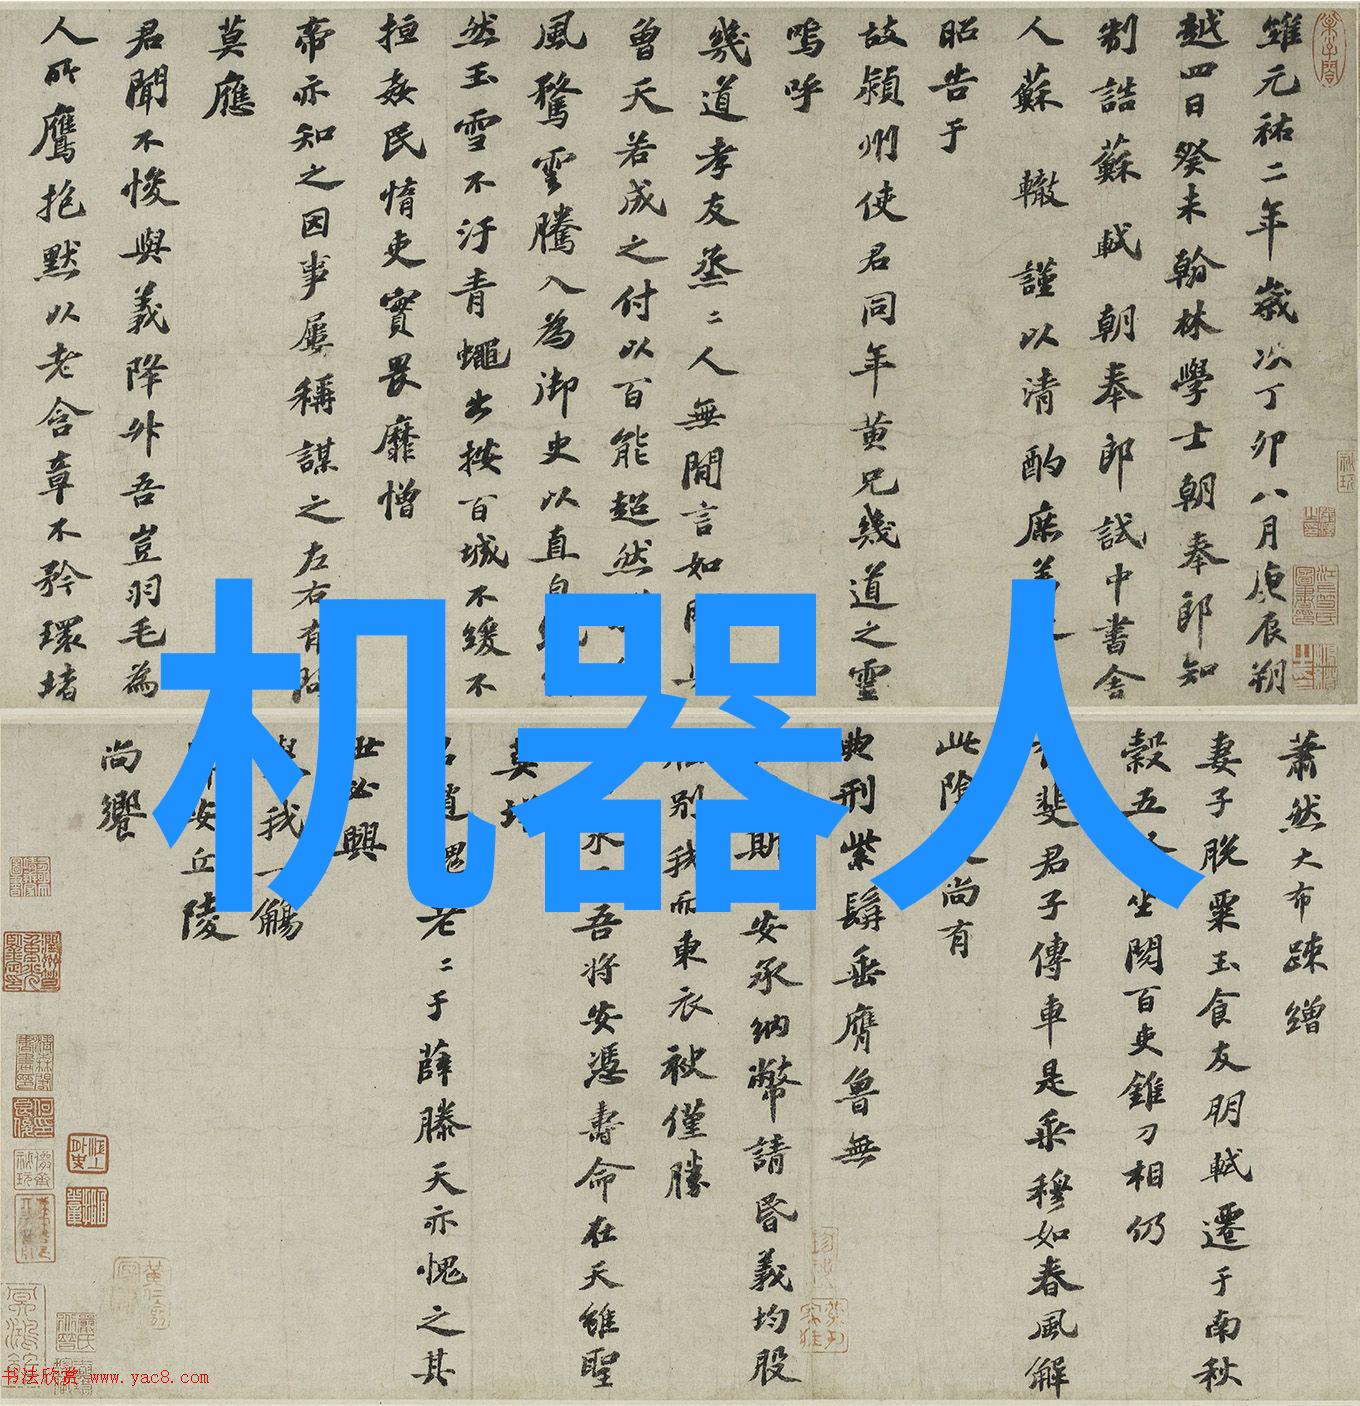 維元祐二年歲次丁卯八月庚辰朔
越四日癸未翰林學士朝奉郎知
制誥蘇軾朝奉郎試中書舍
人蘇轍謹以清酌庶羞之
昭告于
故潁州使君同年黄兄幾道之靈
嗚呼
幾道孝友烝二人無間言如
曾天若成之付以百能超然
風騖雲騰入為御史以直自
然玉雪不汙青蠅出按百城不緩不
捶姦民惰吏實畏靡憎
帝亦知之因事屢稱謀之左右有
莫應
君聞不悛與義降升吾豈羽毛為
人所鷹抱默以老含章不矜環堵
蕭然大布疎繒
妻子脫粟玉食友朋軾遷于南秋
穀五坐閱百吏錐刀相仍
斐君子傳車是乘穆如春風解
此陰尚有
典刑紫髯垂膺魯無
斯安承納幣請昏義均股
別我而東衣袂僅勝
永吾將安憑壽命在天雖聖
莫增
君趙魏老二于薛滕天亦愧之其
世必興
舉我一觴
安丘陵
尚饗
机器人
书法欣赏 www.yac8.com